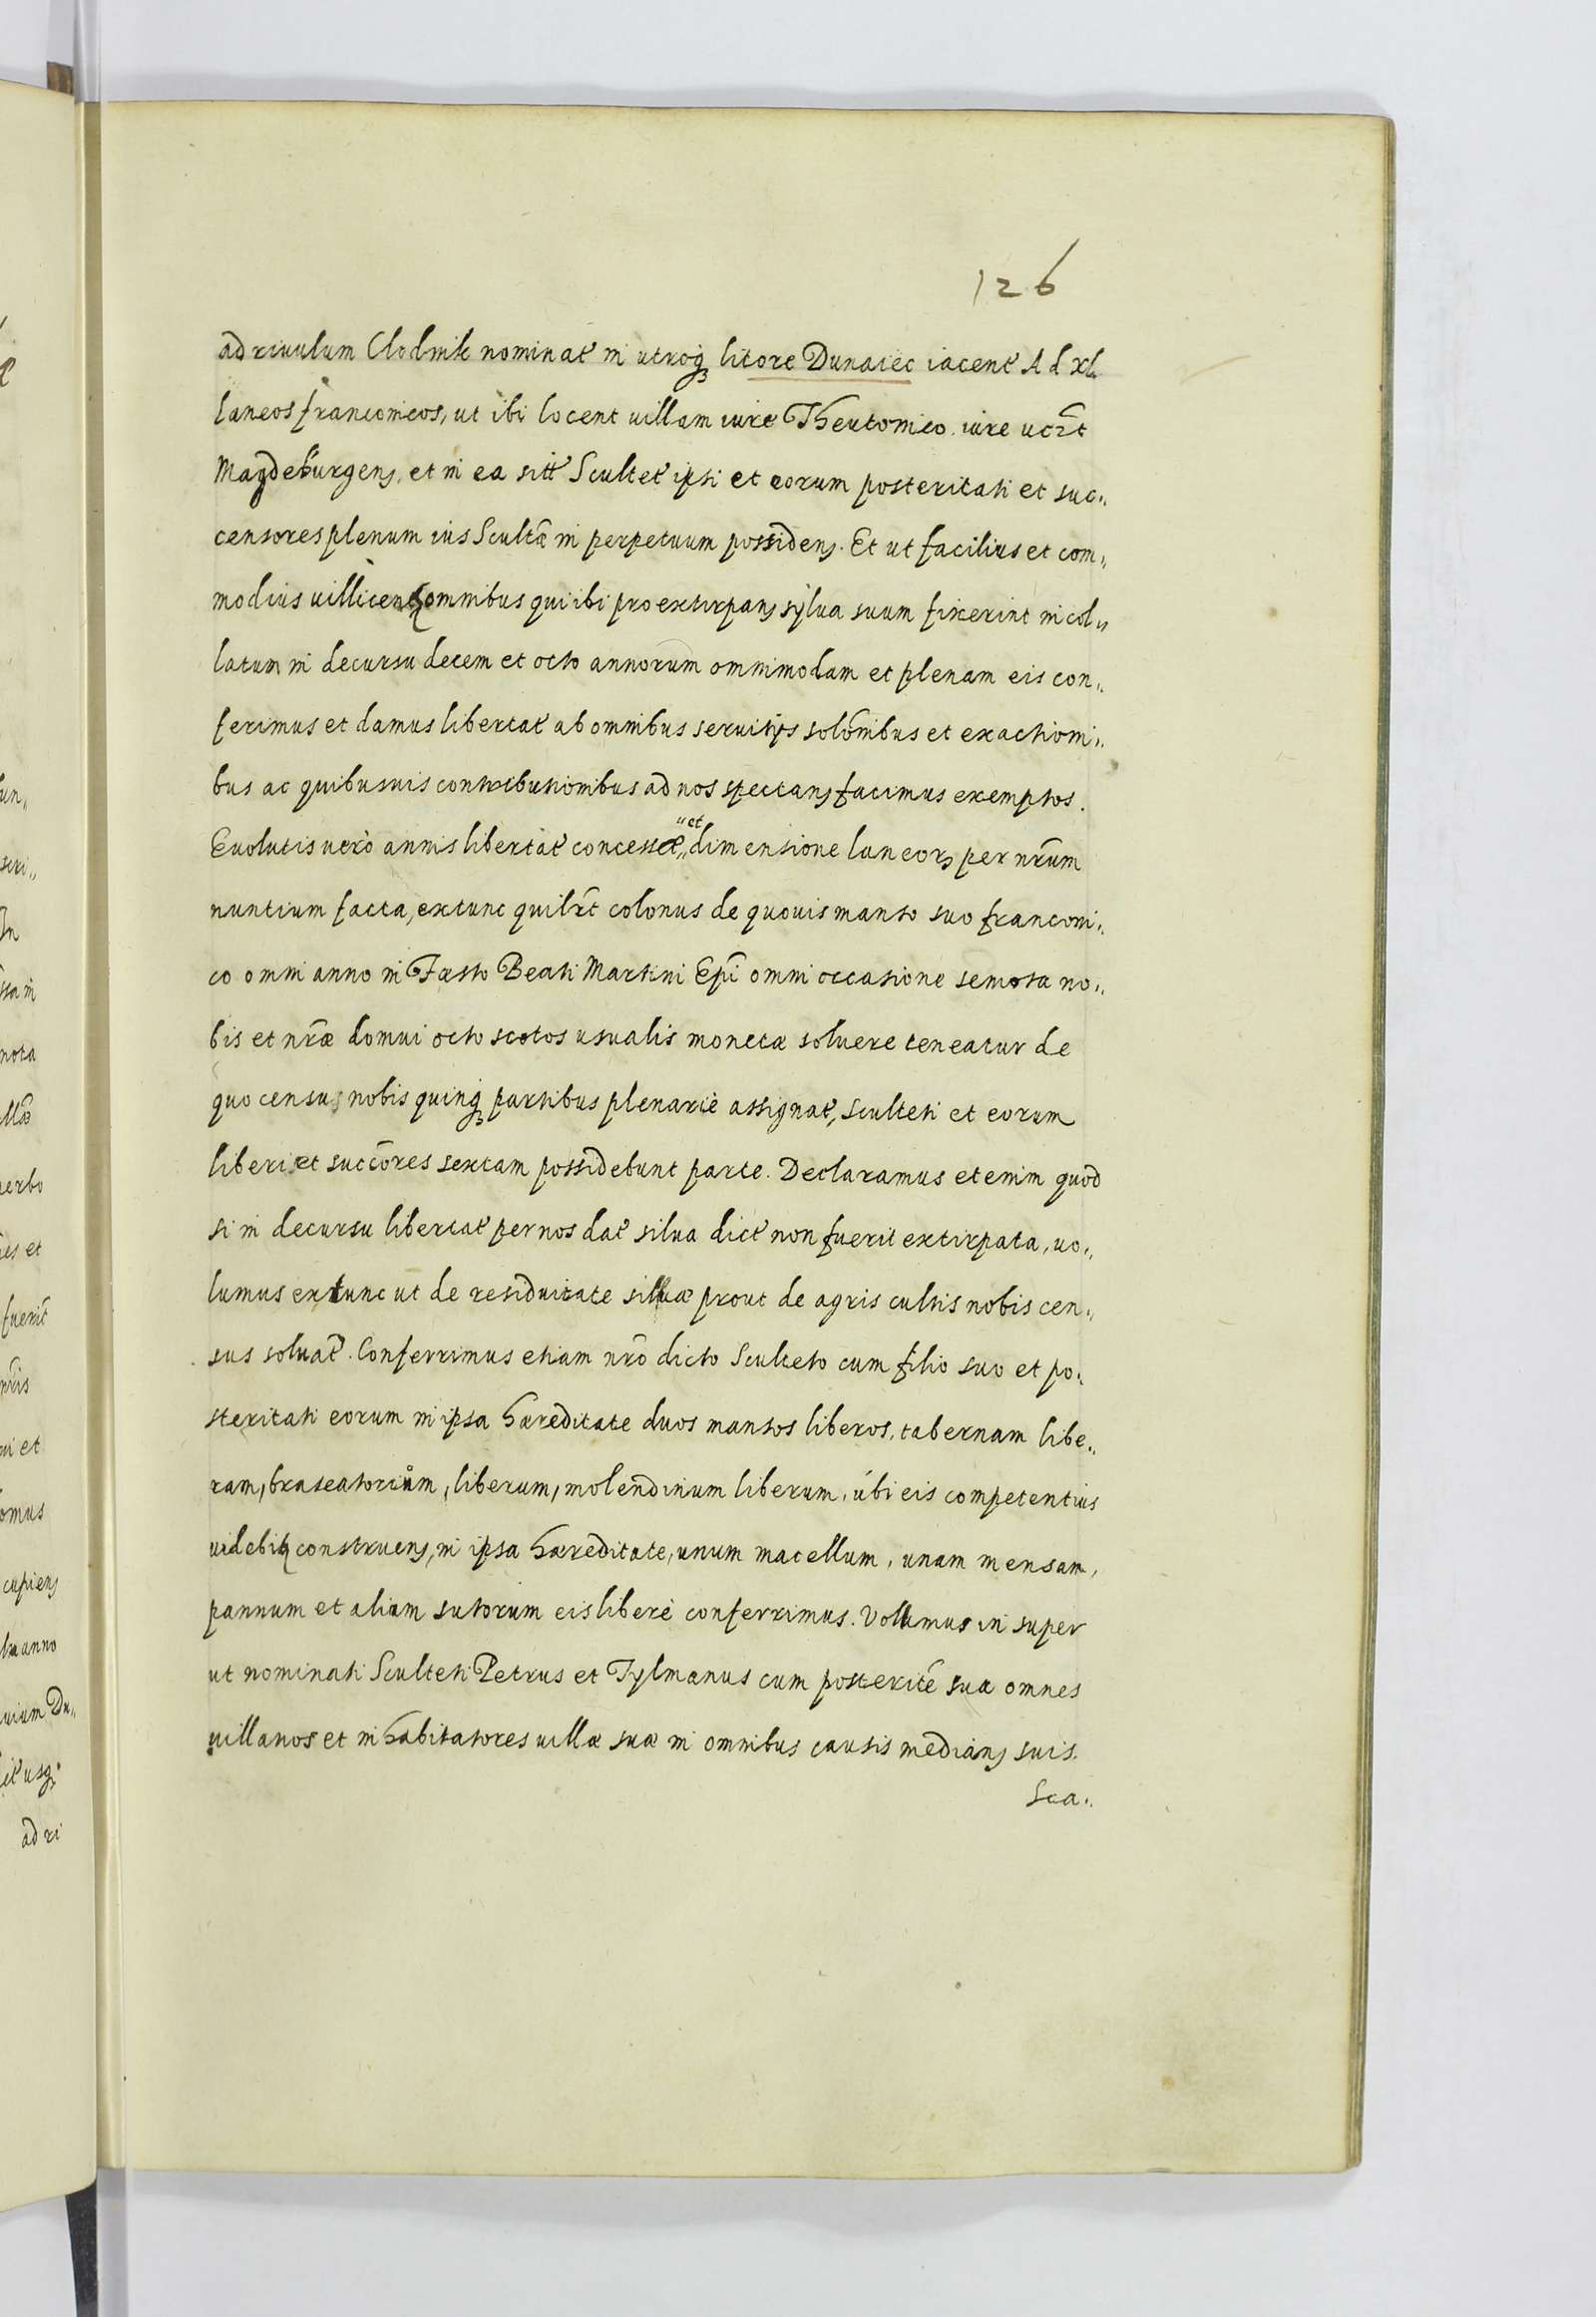 126
ad riuulum Clodnik nominat̃ in utroq; litore Dunaiec iacent̃ Ad xl
laneos franconicos, ut ibi locent uillam iure Theutonico. iure ucr̃t
Magdeburgens, et in ea sitt̃ Scultet̃ ipsi et eorum posteritati et suc„
censores plenum ius Scultæ̃ in perpetuum possidens. Et ut facilius et com„
modius uillicent omnibus qui ibi pro extirpans sylua suum fixerint incol„
latum in decursu decem et octo annorum omnimodam et plenam eis con„
ferimus et damus libertat̃ ab omnibus seruitijs solõnibus et exactioni„
bus ac quibusuis contributionibus ad nos spectans facimus exemptos.
Euolutis uerò annis libertat̃ concessæ „et„ dimensione laneorꝫ per nr̃um
nuntium facta, extunc quilr̃t colonus de quouis manso suo franconi„
co omni anno in Fæsto Beati Martini Epĩ omni occasione semota no„
bis et nr̃æ domui octo scotos usualis monetæ soluere teneatur de
quo censu nobis quinq; partibus plenariè assignat̃, sculteti et eorum
liberi et succõres sextam possidebunt parte. Declaramus etenim quod
si in decursu libertat̃ per nos dat̃ silua dict̃ non fuerit extirpata, uo„
lumus extunc ut de residuitate siluæ prout de agris cultis nobis cen„
sus soluat̃. Conferrimus etiam nr̃o dicto Sculteto cum filio suo et po„
steritati eorum in ipsa hæreditate duos mansos liberos, tabernam libe„
ram, braseatorium, liberum, molendinum liberum, úbi eis competentius
uidebit construens, in ipsa hæreditate, unum macellum, unam mensam,
pannum et aliam sutorum eis liberè conferrimus. Volumus in super
ut nominati Sculteti Petrus et Tylmanus cum posterite͂ sua omnes
uillanos et inhabitatores uillæ suæ in omnibus causis medians suis.
Sca„